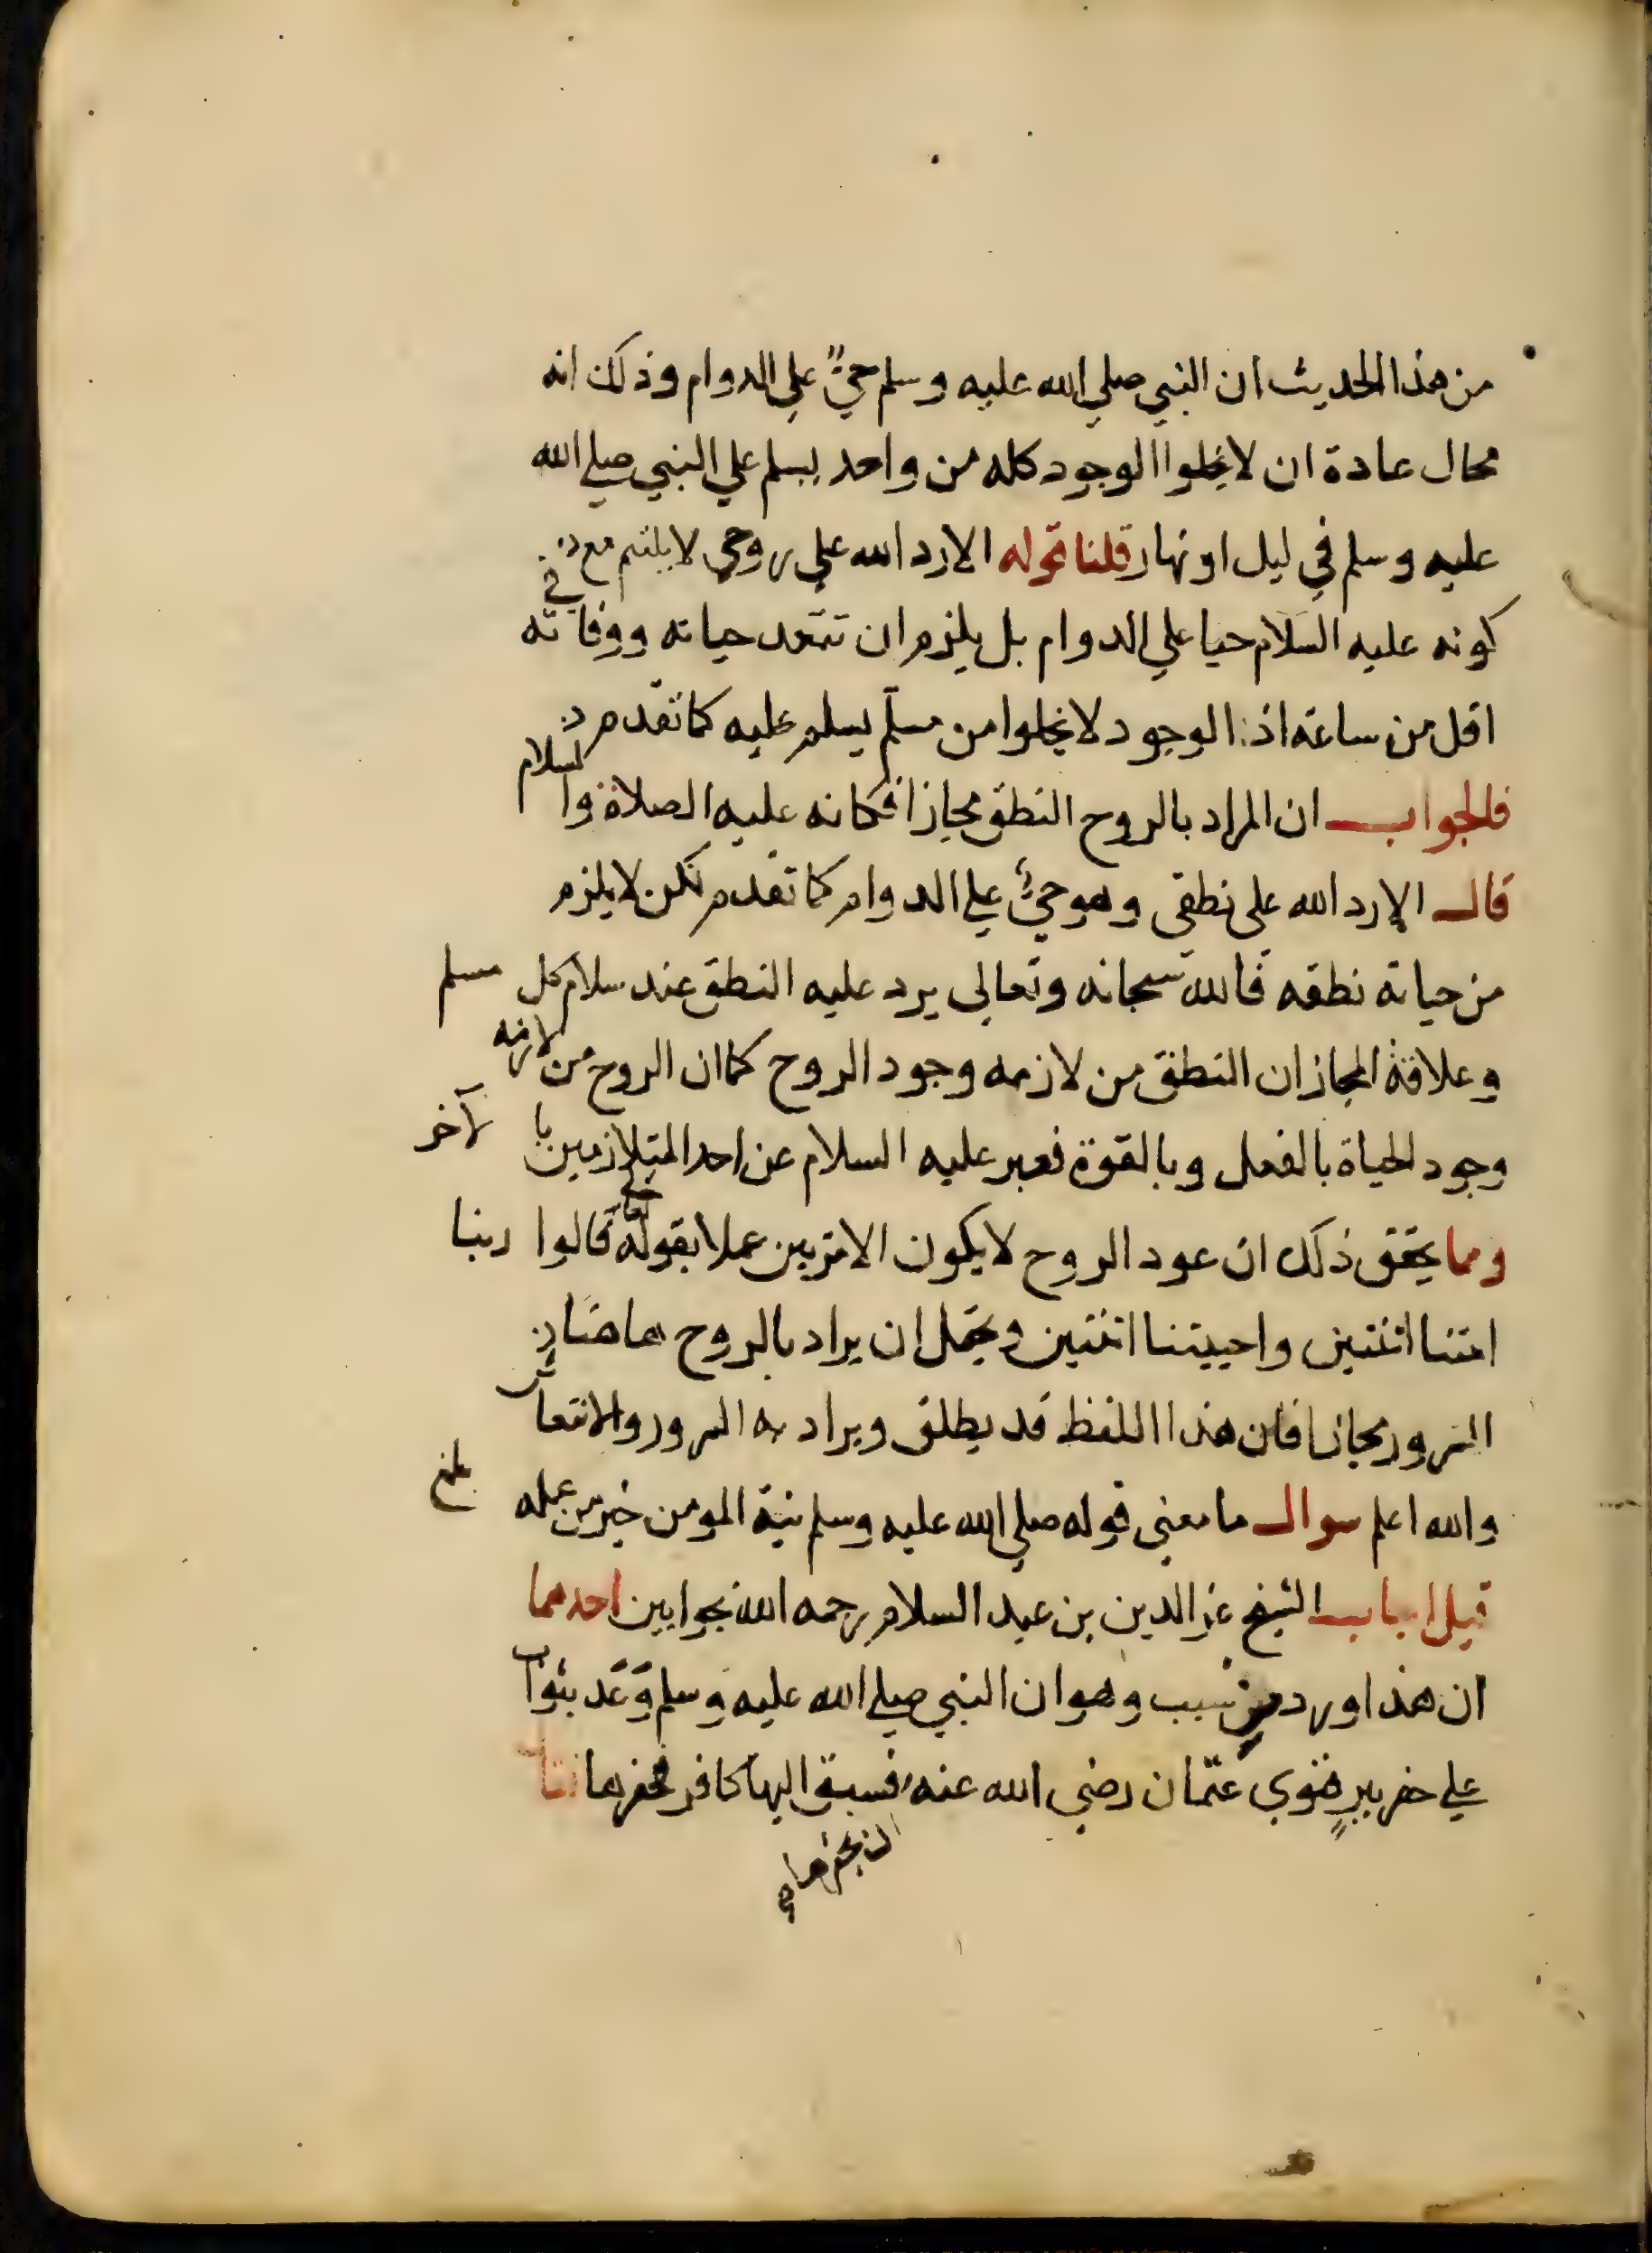 من هذا الحديث ان النبي صلي الله عليه وسلم حيٌّ علي الدوام وذلك انه
محال عادة ان لا يخلوا الوجود كله من واحد يسلم علي النبي صلي الله
عليه وسلم في ليل او نهار قلنا قوله الا رد الله علي روحي لا يلتئم مع
كونه عليه السلام حيا علي الدوام بل يلزم ان تتعدد حياته ووفاته في
اقل من ساعة اذ الوجود لا يخلوا من مسلّم يسلم عليه كما تقدم
فالجواب ان المراد بالروح النطق مجازا فكانه عليه الصلاة والسلام
قال الا رد الله علي نطقي وهو حيٌّ علي الدوام كما تقدم لكن لا يلزم
من حياته نطقه فالله سبحانه وتعالي يرد عليه النطق عند سلام كل مسلم
وعلاقة المجاز ان النطق من لازمه وجود الروح كما ان الروح من لازمه
وجود الحياة بالفعل وبالقوة فعبر عليه السلام عن احد المتلازمين بالآخر
ومما يحقق ذلك ان عود الروح لا يكون الا مرتين عملا بقوله تعالي قالوا ربنا
امتنا اثنتين واحييتنا اثنتين ويحتمل ان يراد بالروح هاهنا
السرور مجازا فان هذا اللفظ قد يطلق ويراد به السرور والانتعاش
والله اعلم سوال ما معني قوله صلي الله عليه وسلم نية المومن خير من عمله
بلغ
قيل اجاب الشيخ عز الدين بن عبد السلام رحمه الله بجوابين احدهما
ان هذا ورد من سبب وهو ان النبي صلي الله عليه وسلم وَعَد بثواب
علي حفر بيرٍ فنوي عثمان رضي الله عنه فسبق اليها كافر فحفرها
ان يحفرها